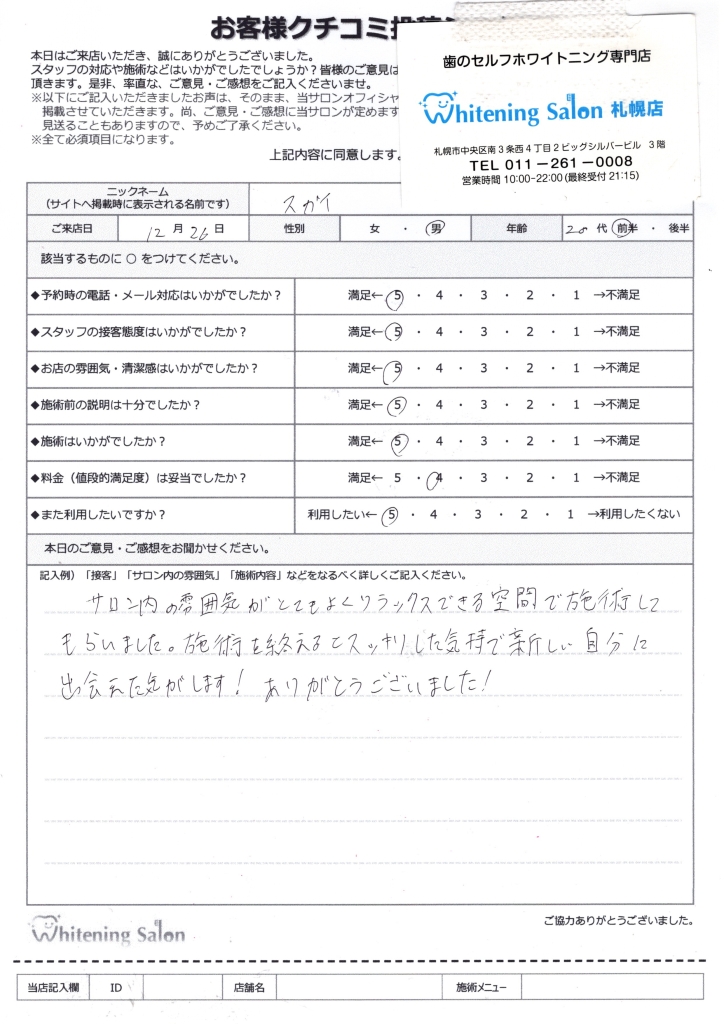 お客様クチコミ投稿
本日はご来店いただき、誠にありがとうございました。
スタッフの対応や施術などはいかがでしたでしょうか？皆様のご意見は
頂きます。是非、率直な、ご意見・ご感想をご記入くださいませ。
※以下にご記入いただきましたお声は、そのまま、当サロンオフィシャ
掲載させていただきます。尚、ご意見・ご感想に当サロンが定めます
見送ることもありますので、予めご了承ください。
※全て必須項目になります。
上記内容に同意します。
歯のセルフホワイトニング専門店
Whitening Salon 札幌店
札幌市中央区南3条西4丁目2ビッグシルバービル 3階
TEL 011-261-0008
営業時間 10:00-22:00(最終受付 21:15)
ニックネーム
（サイトへ掲載時に表示される名前です） スガイ
ご来店日 12月26日 性別 女 ・ 男 年齢 20代 前半 ・ 後半
該当するものに ○ をつけてください。
◆予約時の電話・メール対応はいかがでしたか？ 満足← 5 ・ 4 ・ 3 ・ 2 ・ 1 →不満足
◆スタッフの接客態度はいかがでしたか？ 満足← 5 ・ 4 ・ 3 ・ 2 ・ 1 →不満足
◆お店の雰囲気・清潔感はいかがでしたか？ 満足← 5 ・ 4 ・ 3 ・ 2 ・ 1 →不満足
◆施術前の説明は十分でしたか？ 満足← 5 ・ 4 ・ 3 ・ 2 ・ 1 →不満足
◆施術はいかがでしたか？ 満足← 5 ・ 4 ・ 3 ・ 2 ・ 1 →不満足
◆料金（値段的満足度）は妥当でしたか？ 満足← 5 ・ 4 ・ 3 ・ 2 ・ 1 →不満足
◆また利用したいですか？ 利用したい← 5 ・ 4 ・ 3 ・ 2 ・ 1 →利用したくない
本日のご意見・ご感想をお聞かせください。
記入例）「接客」「サロン内の雰囲気」「施術内容」などをなるべく詳しくご記入ください。
サロン内の雰囲気がとてもよくリラックスできる空間で施術して
もらいました。施術を終えるとスッキリした気持で新しい自分に
出会えた気がします！ ありがとうございました！
ご協力ありがとうございました。
Whitening Salon
当店記入欄 ID 店舗名 施術メニュー